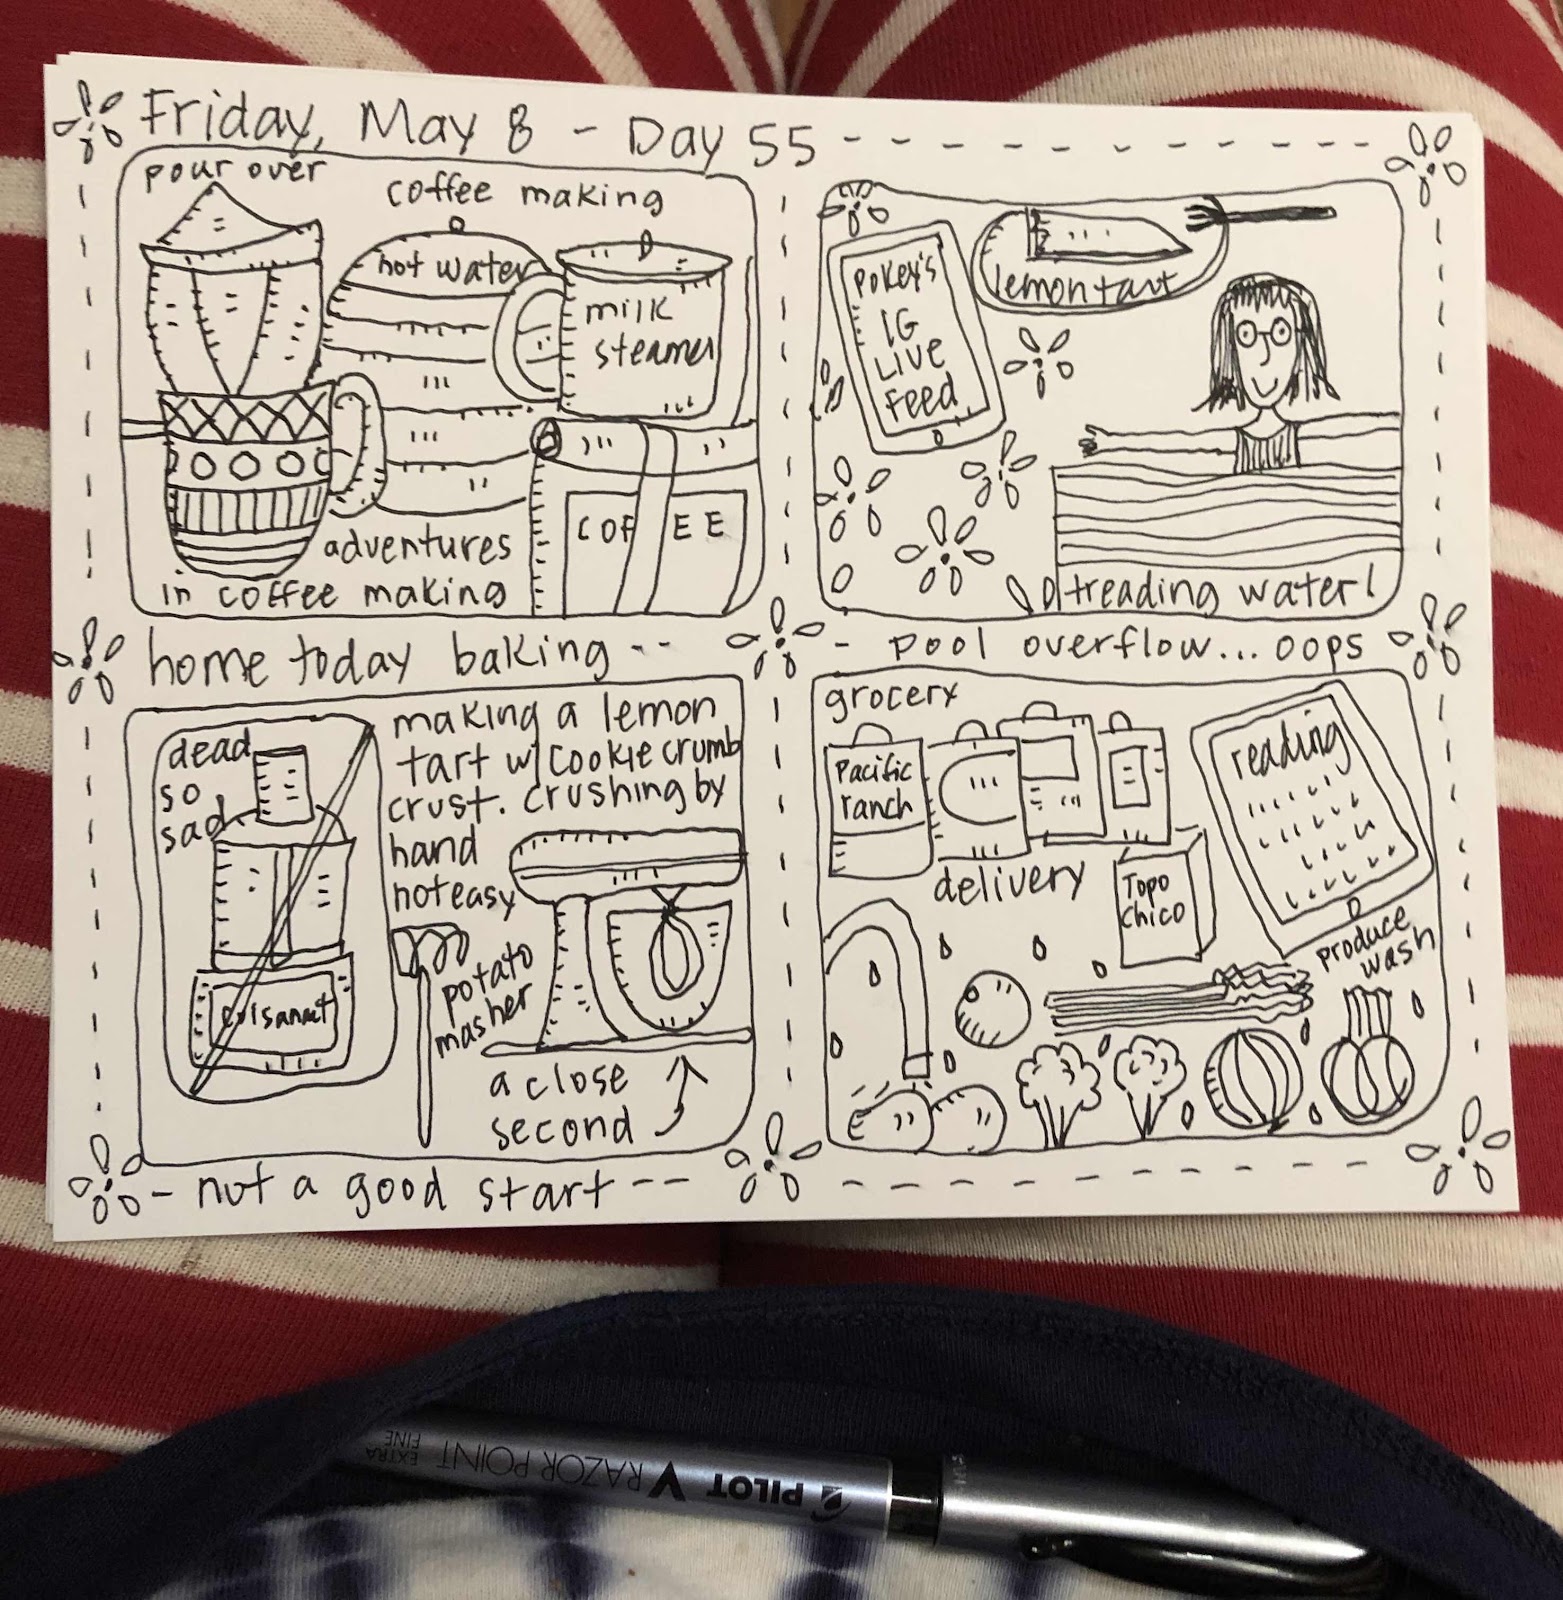 Friday, May 8 - Day 55
pour over
coffee making
hot water
milk
steamer
COFFEE
adventures
in coffee making
Pokey's
IG
LIVE
Feed
lemon tart
treading water!
home today baking
pool overflow... oops
dead
so
sad
making a lemon
tart w/ cookie crumb
crust. crushing by
hand
not easy
potato
masher
a close
second
grocery
Pacific
ranch
delivery
Topo
Chico
reading
produce
wash
not a good start
PILOT V RAZOR POINT
EXTRA
FINE